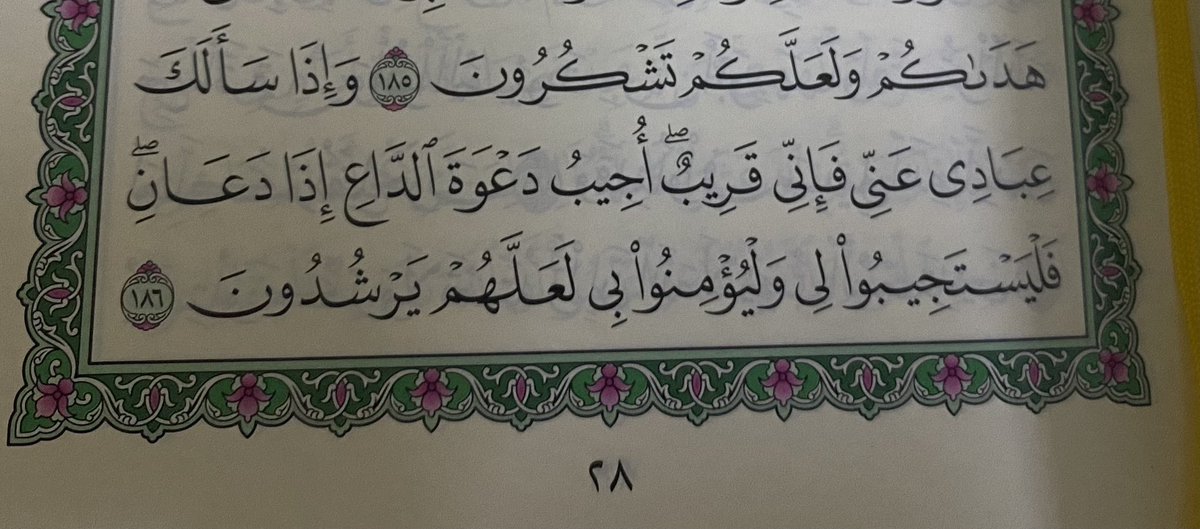 هَدَىٰكُمْ وَلَعَلَّكُمْ تَشْكُرُونَ ١٨٥ وَإِذَا سَأَلَكَ
عِبَادِى عَنِّى فَإِنِّى قَرِيبٌۖ أُجِيبُ دَعْوَةَ ٱلدَّاعِ إِذَا دَعَانِۖ
فَلْيَسْتَجِيبُوا۟ لِى وَلْيُؤْمِنُوا۟ بِى لَعَلَّهُمْ يَرْشُدُونَ ١٨٦
٢٨